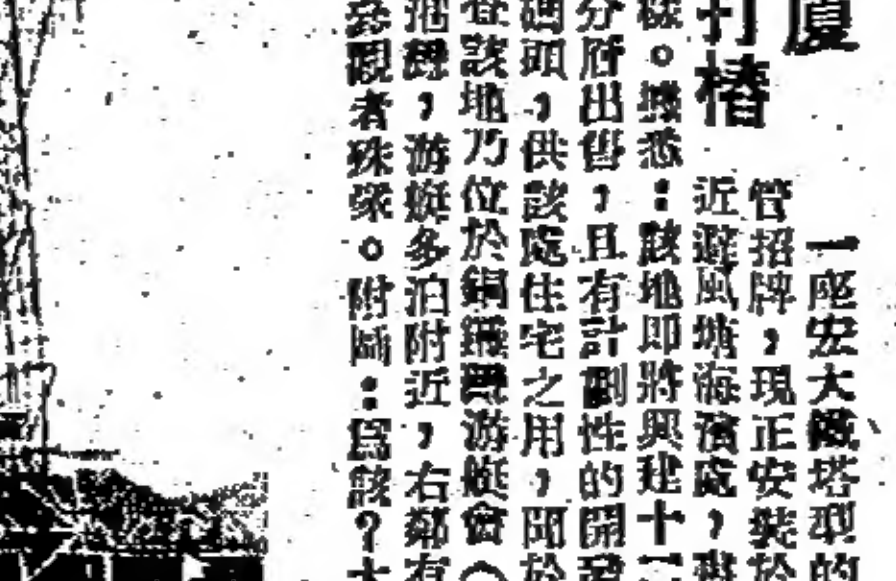 廈
打樁
一座宏大鐵塔型的
管招牌，現正安裝於
近避風塘海濱處，
據悉：該地即將興建十
分層出售，且有計劃性的開發
碼頭，供該處住宅之用，聞於
該地乃位於銅鑼灣游艇會（
游艇多泊附近，右鄰有
參觀者殊眾。附圖：爲該？大